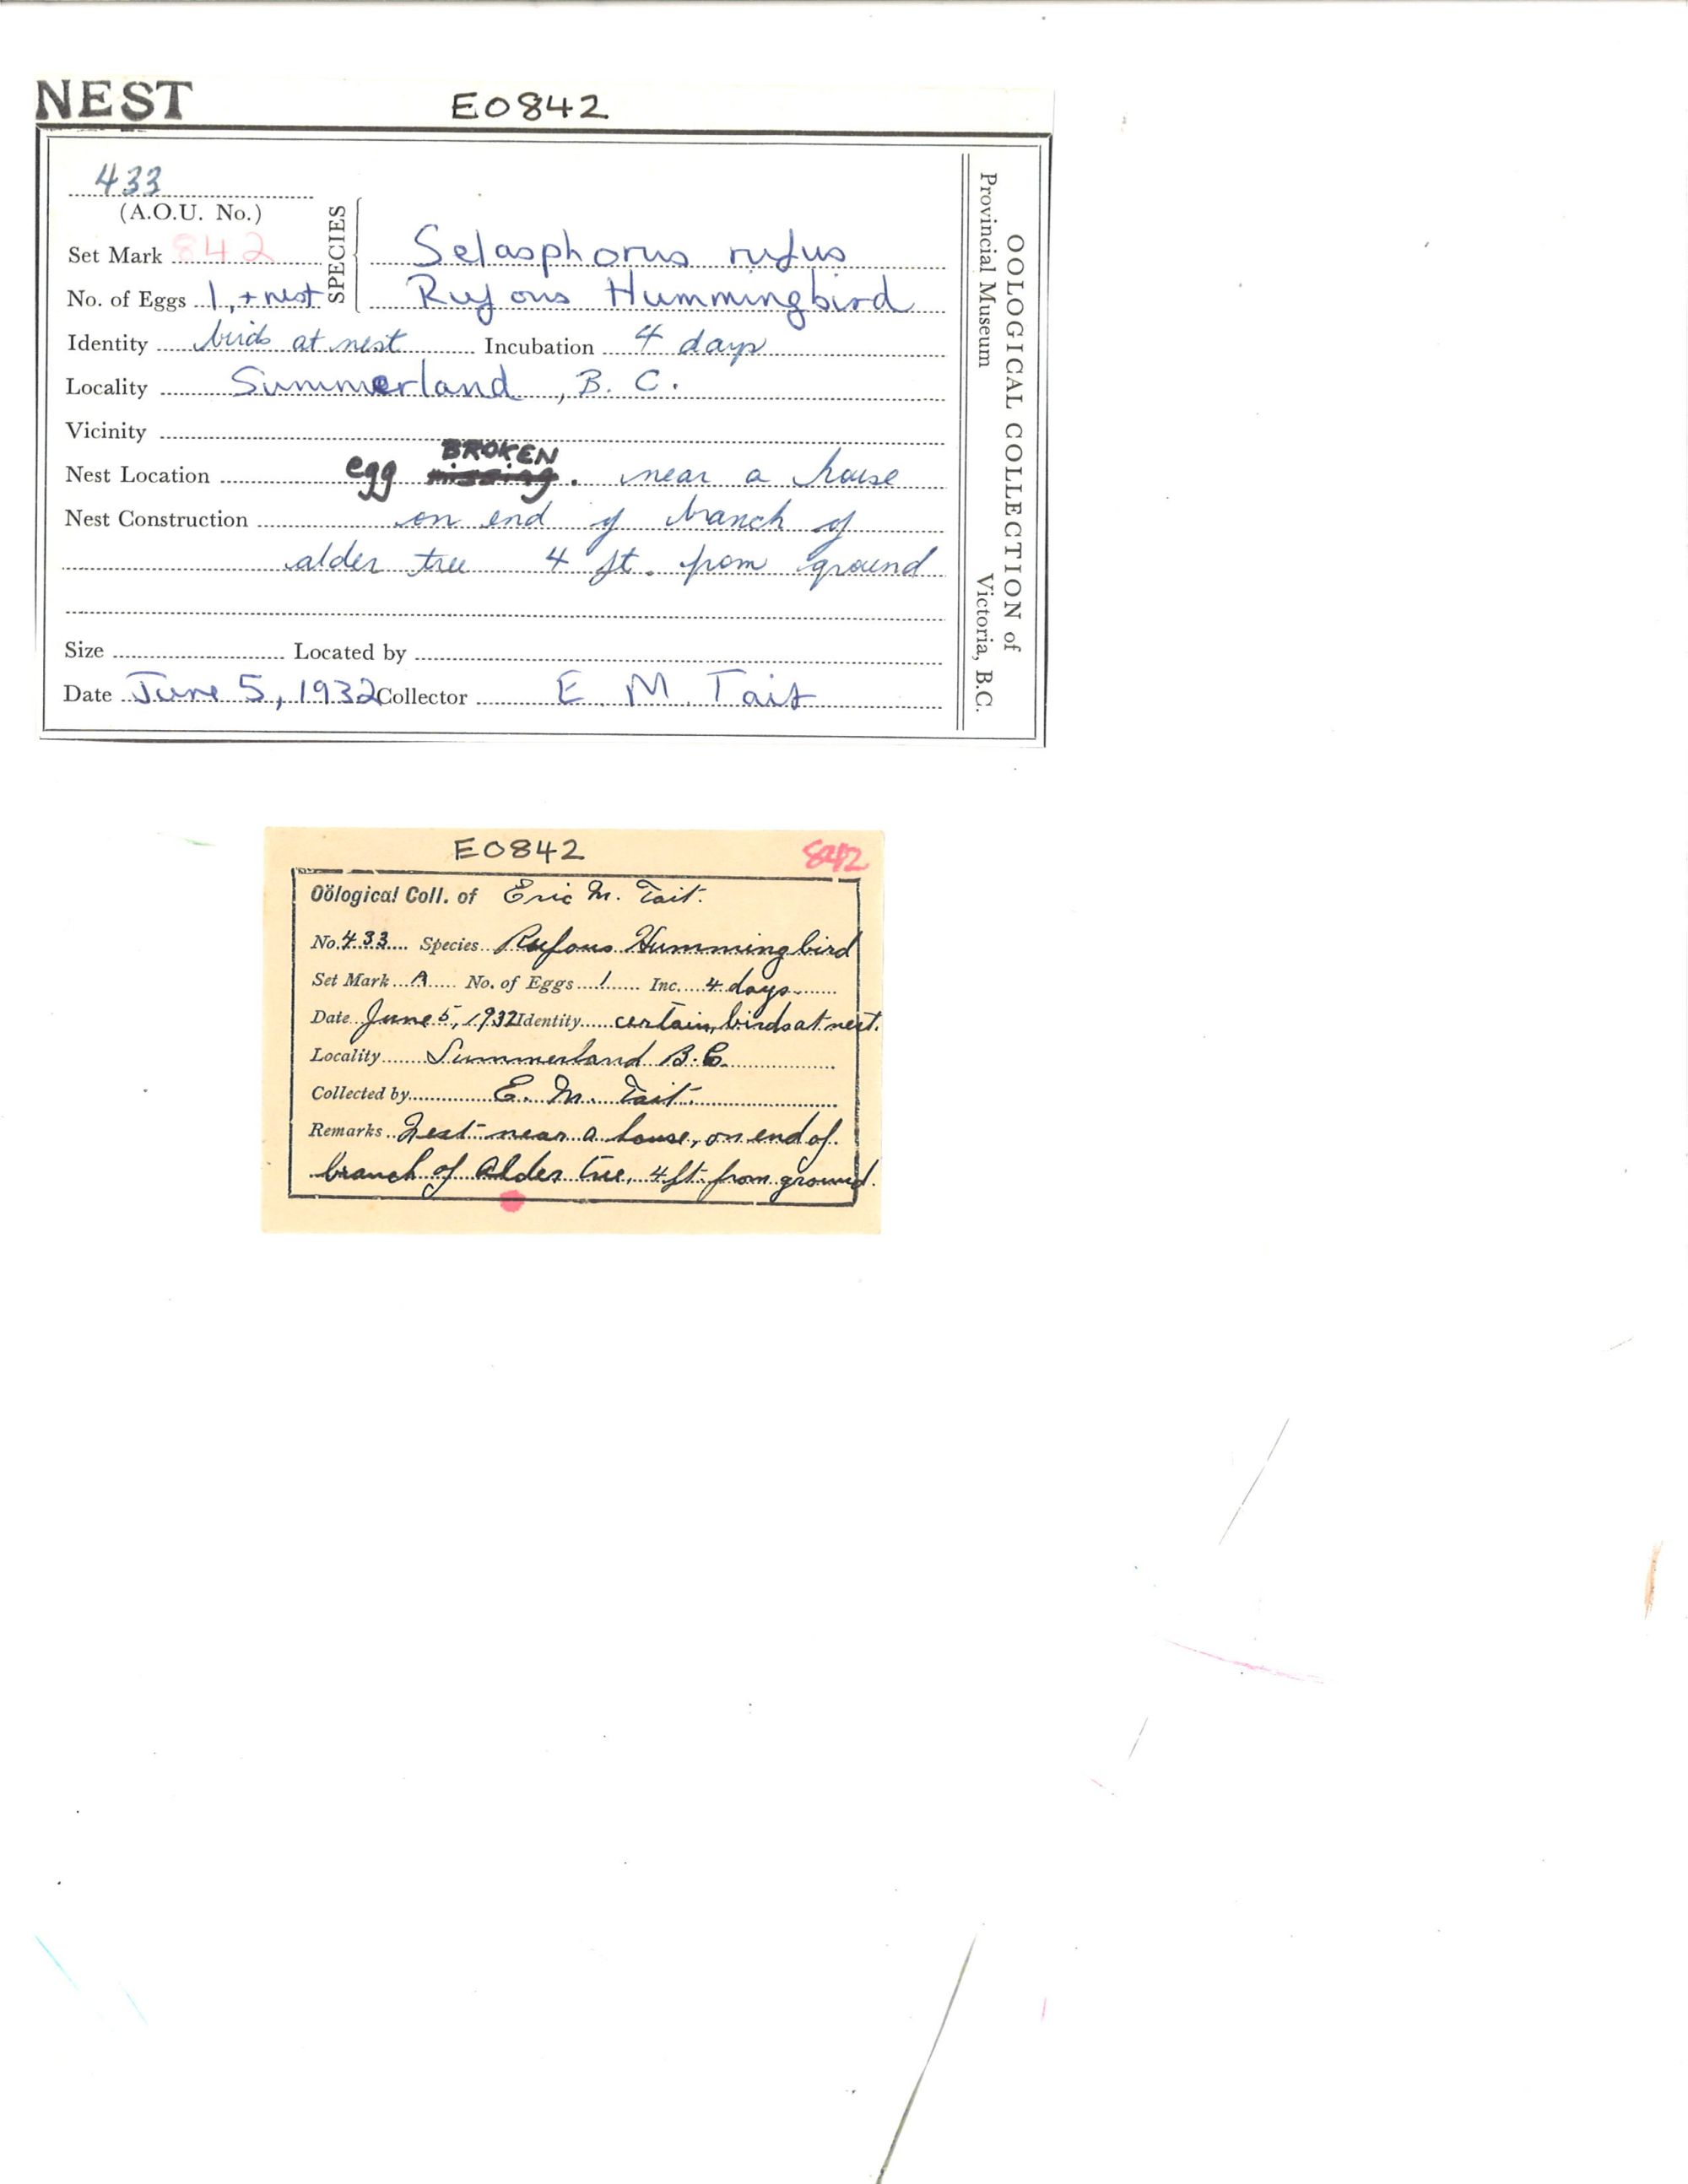 NEST E0842
433
(A.O.U. No.)
Set Mark 842
SPECIES
Selasphorus rufus
No. of Eggs 1, + nest
Rufous Hummingbird
Identity birds at nest Incubation 4 days
Locality Summerland, B.C.
Vicinity
BROKEN
Nest Location egg missing. near a house
Nest Construction on end of branch of
alder tree 4 ft. from ground
Size Located by
Date June 5, 1932 Collector E. M. Tait
OOLOGICAL COLLECTION of
Provincial Museum Victoria, B.C.
E0842 842
Oölogical Coll. of Eric M. Tait.
No. 433 Species Rufous Hummingbird
Set Mark A No. of Eggs 1 Inc. 4 days
Date June 5, 1932 Identity certain, birds at nest.
Locality Summerland B.C.
Collected by E. M. Tait.
Remarks Nest near a house, on end of
branch of Alder tree, 4 ft. from ground.